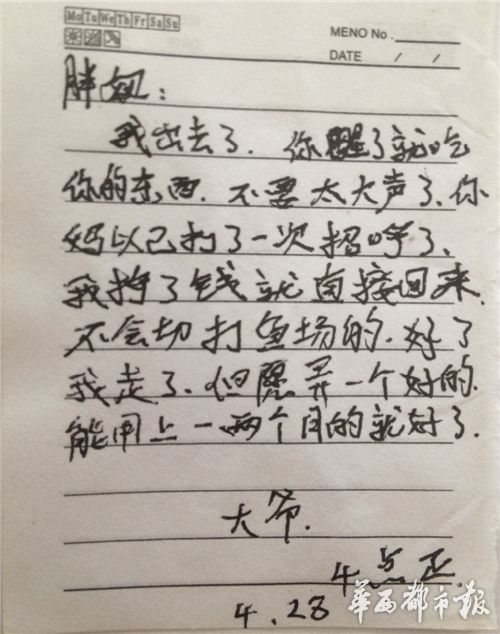 Mo Tu We Th Fr Sa Su
MENO No.
DATE / /
胖妞:
我出去了.你醒了就吃
你的东西.不要太大声了、你
妈以己打了一次招呼了、
我挣了钱就直接回来.
不会切打鱼场的.好了
我走了.但愿弄一个好的.
能用上一两个月的就好了.
大爷.
4点正.
4.28
华西都市报